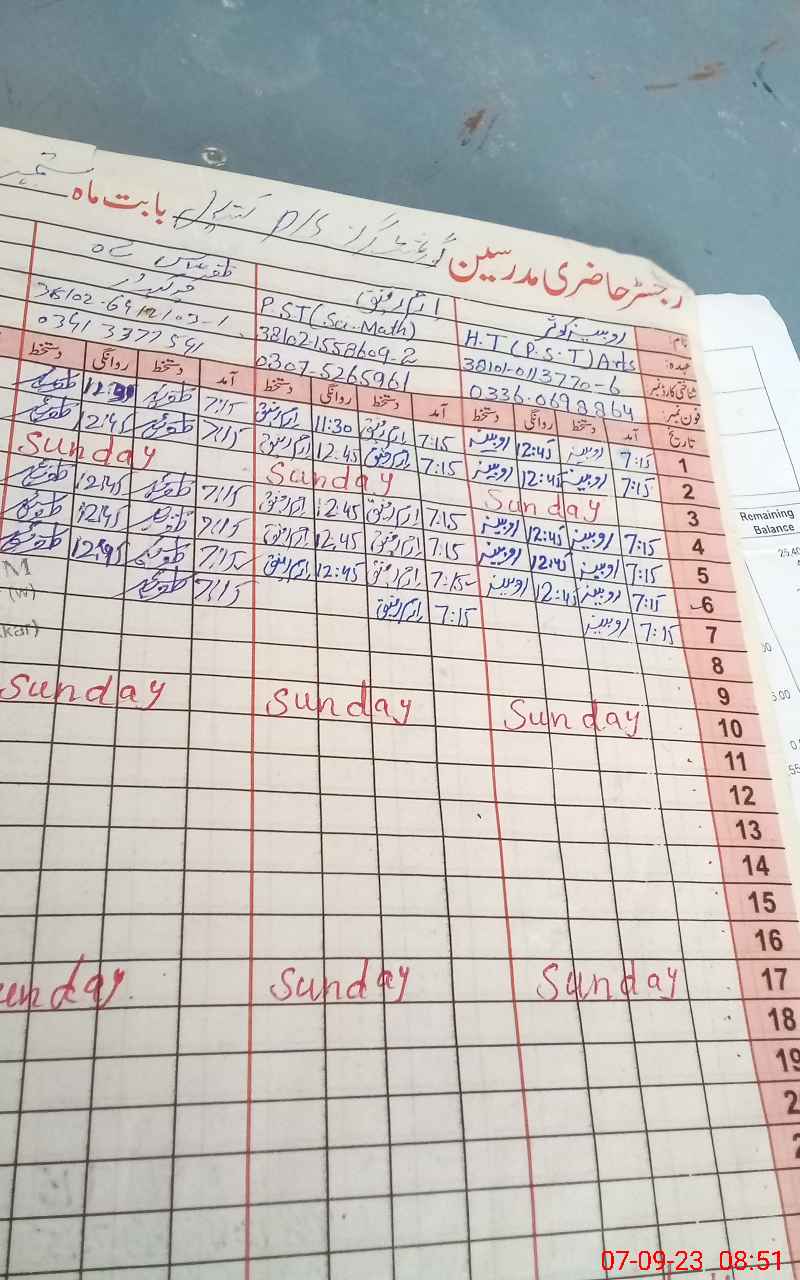 رجسٹر حاضری مدرسین گورنمنٹ گرلز P/S بابت ماہ ستمبر
نام: روبینہ کوثر ارم رفیق
عہدہ: H.T (P.S.T) Arts P.S.T (Sci-Math)
شناختی کارڈ نمبر 38101-0113770-6 381021558609-2
فون نمبر: 0336-0698864 0307-5265961 0341 3377591
تاریخ آمد دستخط روانگی دستخط آمد دستخط روانگی دستخط آمد دستخط روانگی دستخط
1 7:15 روبینہ 12:45 روبینہ 7:15 ارم رفیق 11:30 ارم رفیق 7:15
2 7:15 روبینہ 12:45 روبینہ 7:15 ارم رفیق 12:45 ارم رفیق 7:15 12:45
3 Sunday Sunday Sunday
4 7:15 روبینہ 12:45 روبینہ 7:15 ارم رفیق 12:45 ارم رفیق 7:15 12:45
5 7:15 روبینہ 12:45 روبینہ 7:15 ارم رفیق 12:45 ارم رفیق 7:15 12:45
6 7:15 روبینہ 12:45 روبینہ 7:15 ارم رفیق 12:45 ارم رفیق 7:15 12:45
7 7:15 روبینہ 7:15 ارم رفیق 7:15
8
9
10 Sunday Sunday Sunday
11
12
13
14
15
16
17 Sunday Sunday Sunday
18
19
Remaining
Balance
25.40
07-09-23 08:51